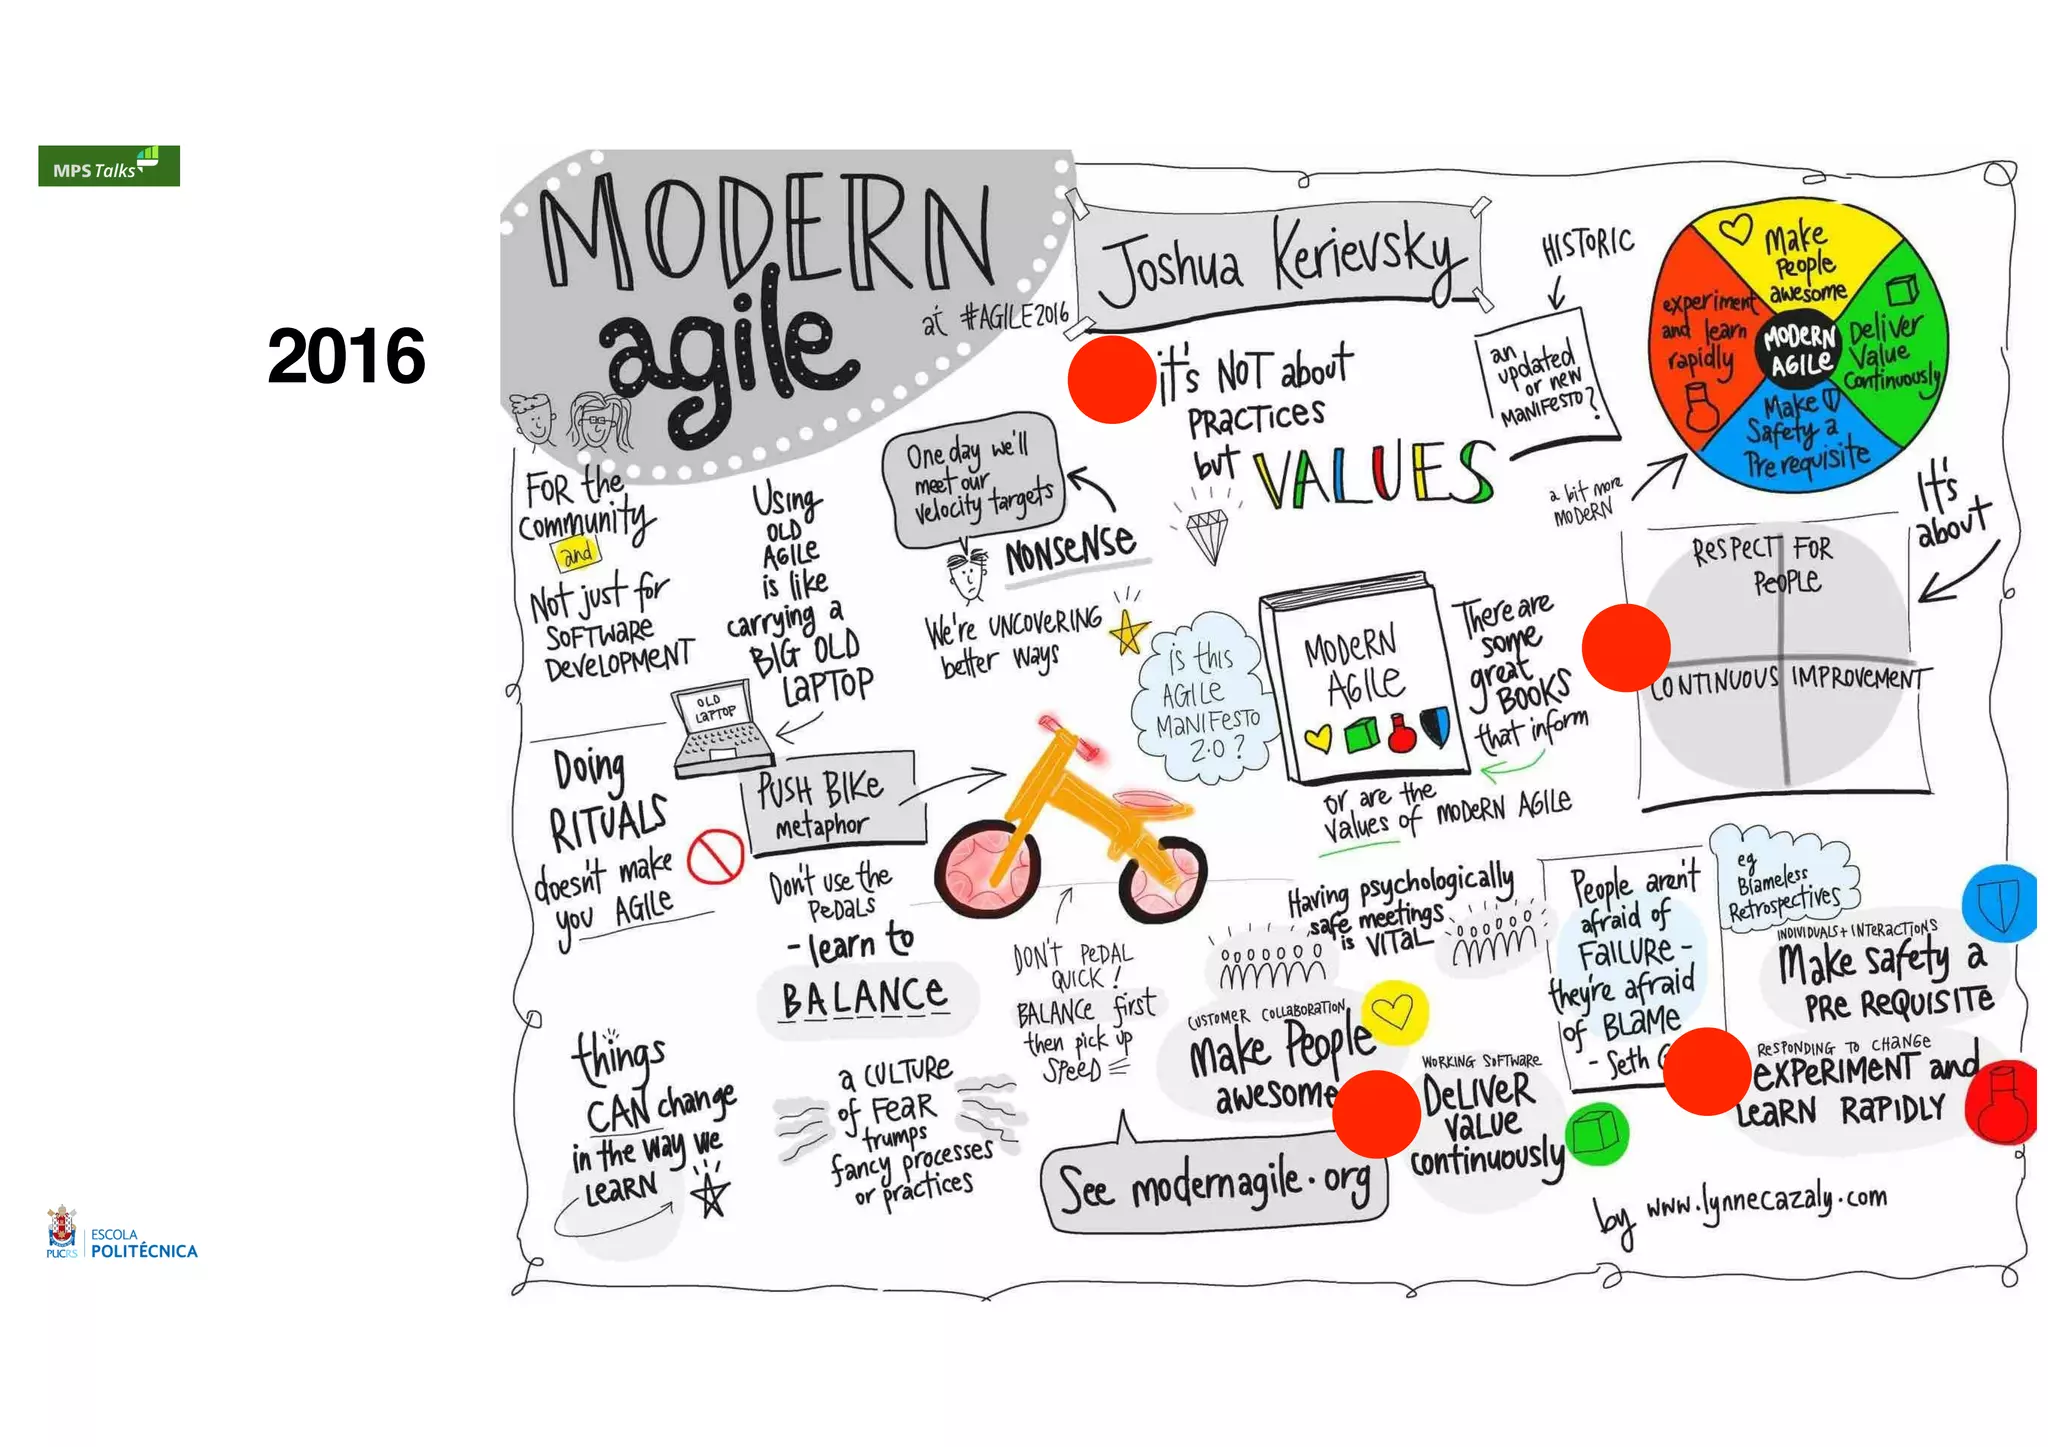 MPS Talks
2016
MODERN
agile
at #AGILE2016
Joshua Kerievsky
HISTORIC
an
updated
or new
MANIFESTO?
a bit more
MODERN
Make
People
awesome
experiment
and learn
rapidly
MODERN
AGILE
Deliver
Value
Continuously
Make
Safety a
Prerequisite
it's NOT about
PRACTICES
but VALUES
It's
about
RESPECT FOR
PEOPLE
CONTINUOUS IMPROVEMENT
FOR the
community
and
Not just for
SOFTWARE
DEVELOPMENT
Using
OLD
AGILE
is like
carrying a
BIG OLD
LAPTOP
OLD
LAPTOP
One day we'll
meet our
velocity targets
NONSENSE
We're UNCOVERING
better ways
is this
AGILE
MANIFESTO
2.0?
MODERN
AGILE
There are
some
great
BOOKS
that inform
or are the
values of MODERN AGILE
Doing
RITUALS
doesn't make
you AGILE
PUSH BIKE
metaphor
Don't use the
PEDALS
- learn to
BALANCE
DON'T PEDAL
QUICK!
BALANCE first
then pick up
SPEED
Having psychologically
safe meetings
is VITAL
People aren't
afraid of
FAILURE -
they're afraid
of BLAME
- Seth
eg
Blameless
Retrospectives
INDIVIDUALS + INTERACTIONS
Make safety a
PRE REQUISITE
CUSTOMER COLLABORATION
Make People
awesome
WORKING SOFTWARE
DELIVER
VALUE
continuously
RESPONDING TO CHANGE
EXPERIMENT and
LEARN RAPIDLY
things
CAN change
in the way we
LEARN
a CULTURE
of FEAR
trumps
fancy processes
or practices
See modernagile.org
by www.lynnecazaly.com
PUCRS
ESCOLA
POLITÉCNICA